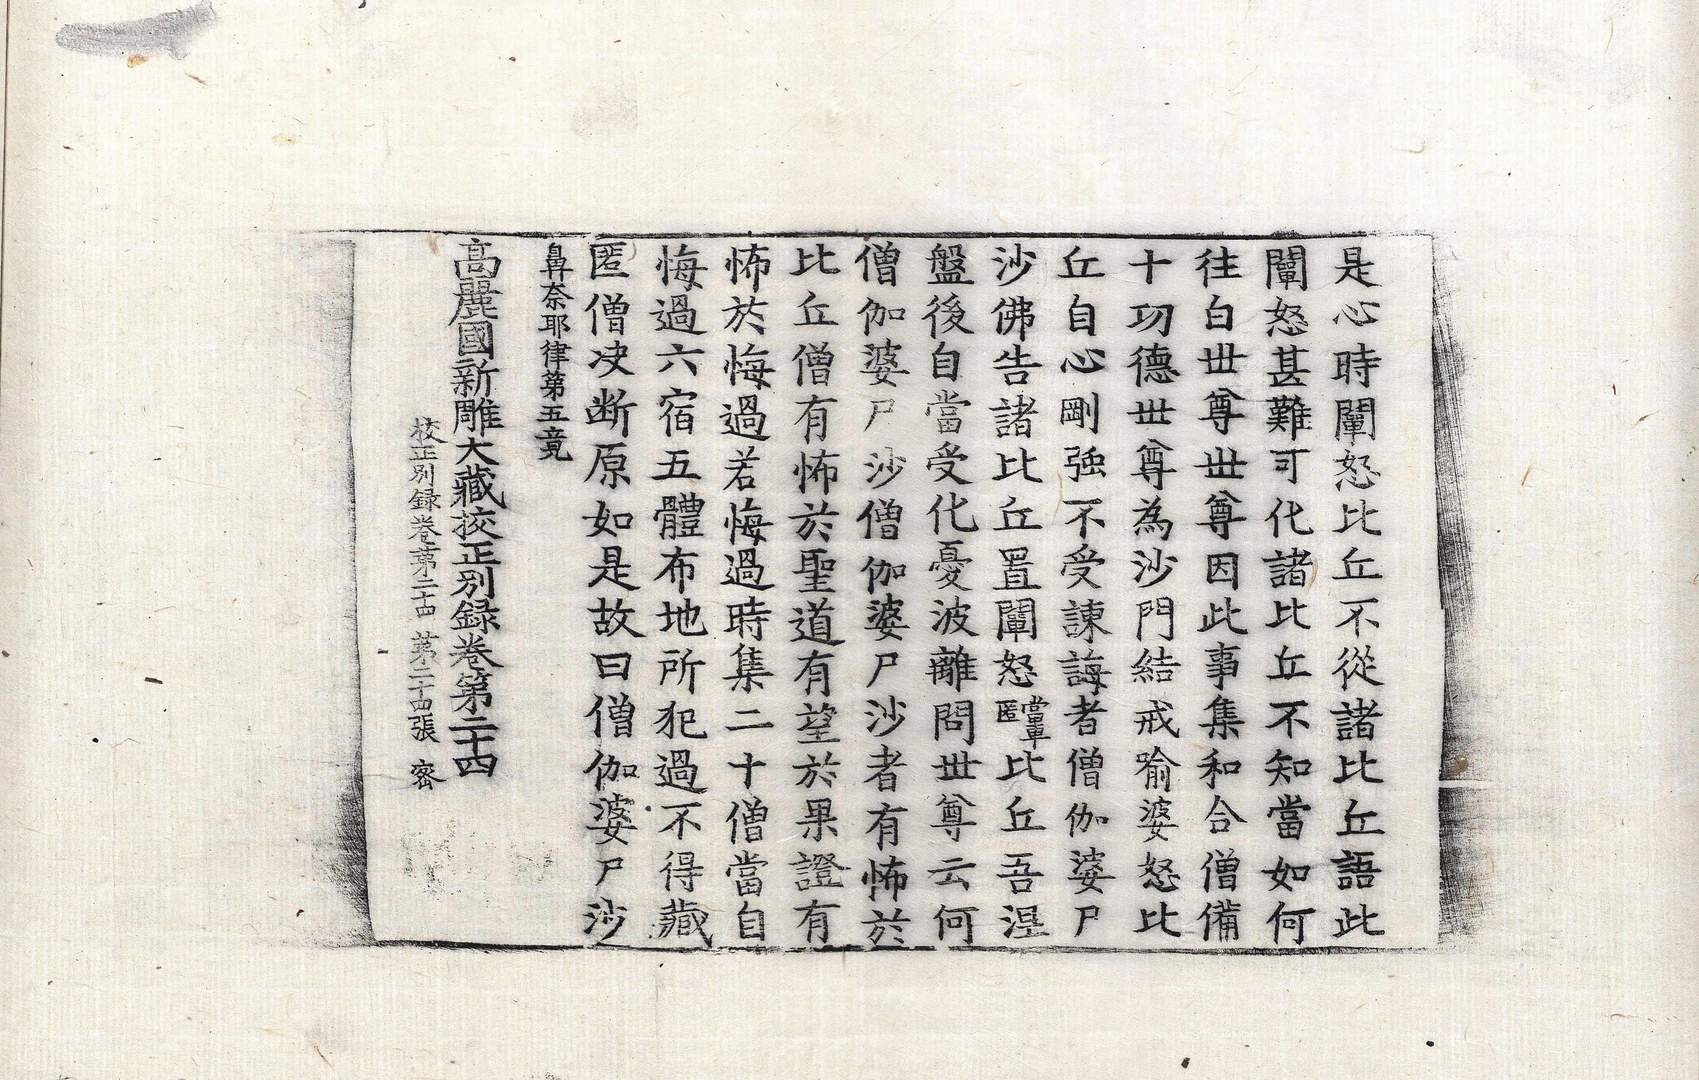 是心時闡怒比丘不從諸比丘語此
闡怒甚難可化諸比丘不知當如何
往白世尊世尊因此事集和合僧備
十功德世尊為沙門結戒喻婆怒比
丘自心剛強不受諫誨者僧伽婆尸
沙佛告諸比丘置闡怒當車匿比丘吾涅
盤後自當受化憂波離問世尊云何
僧伽婆尸沙僧伽婆尸沙者有怖於
比丘僧有怖於聖道有望於果證有
怖於悔過若悔過時集二十僧當自
悔過六宿五體布地所犯過不得藏
匿僧決断原如是故曰僧伽婆尸沙
鼻奈耶律第五竟
高麗國新雕大藏挍正別録卷第二十四
挍正別録卷第二十四 第二十四張 密